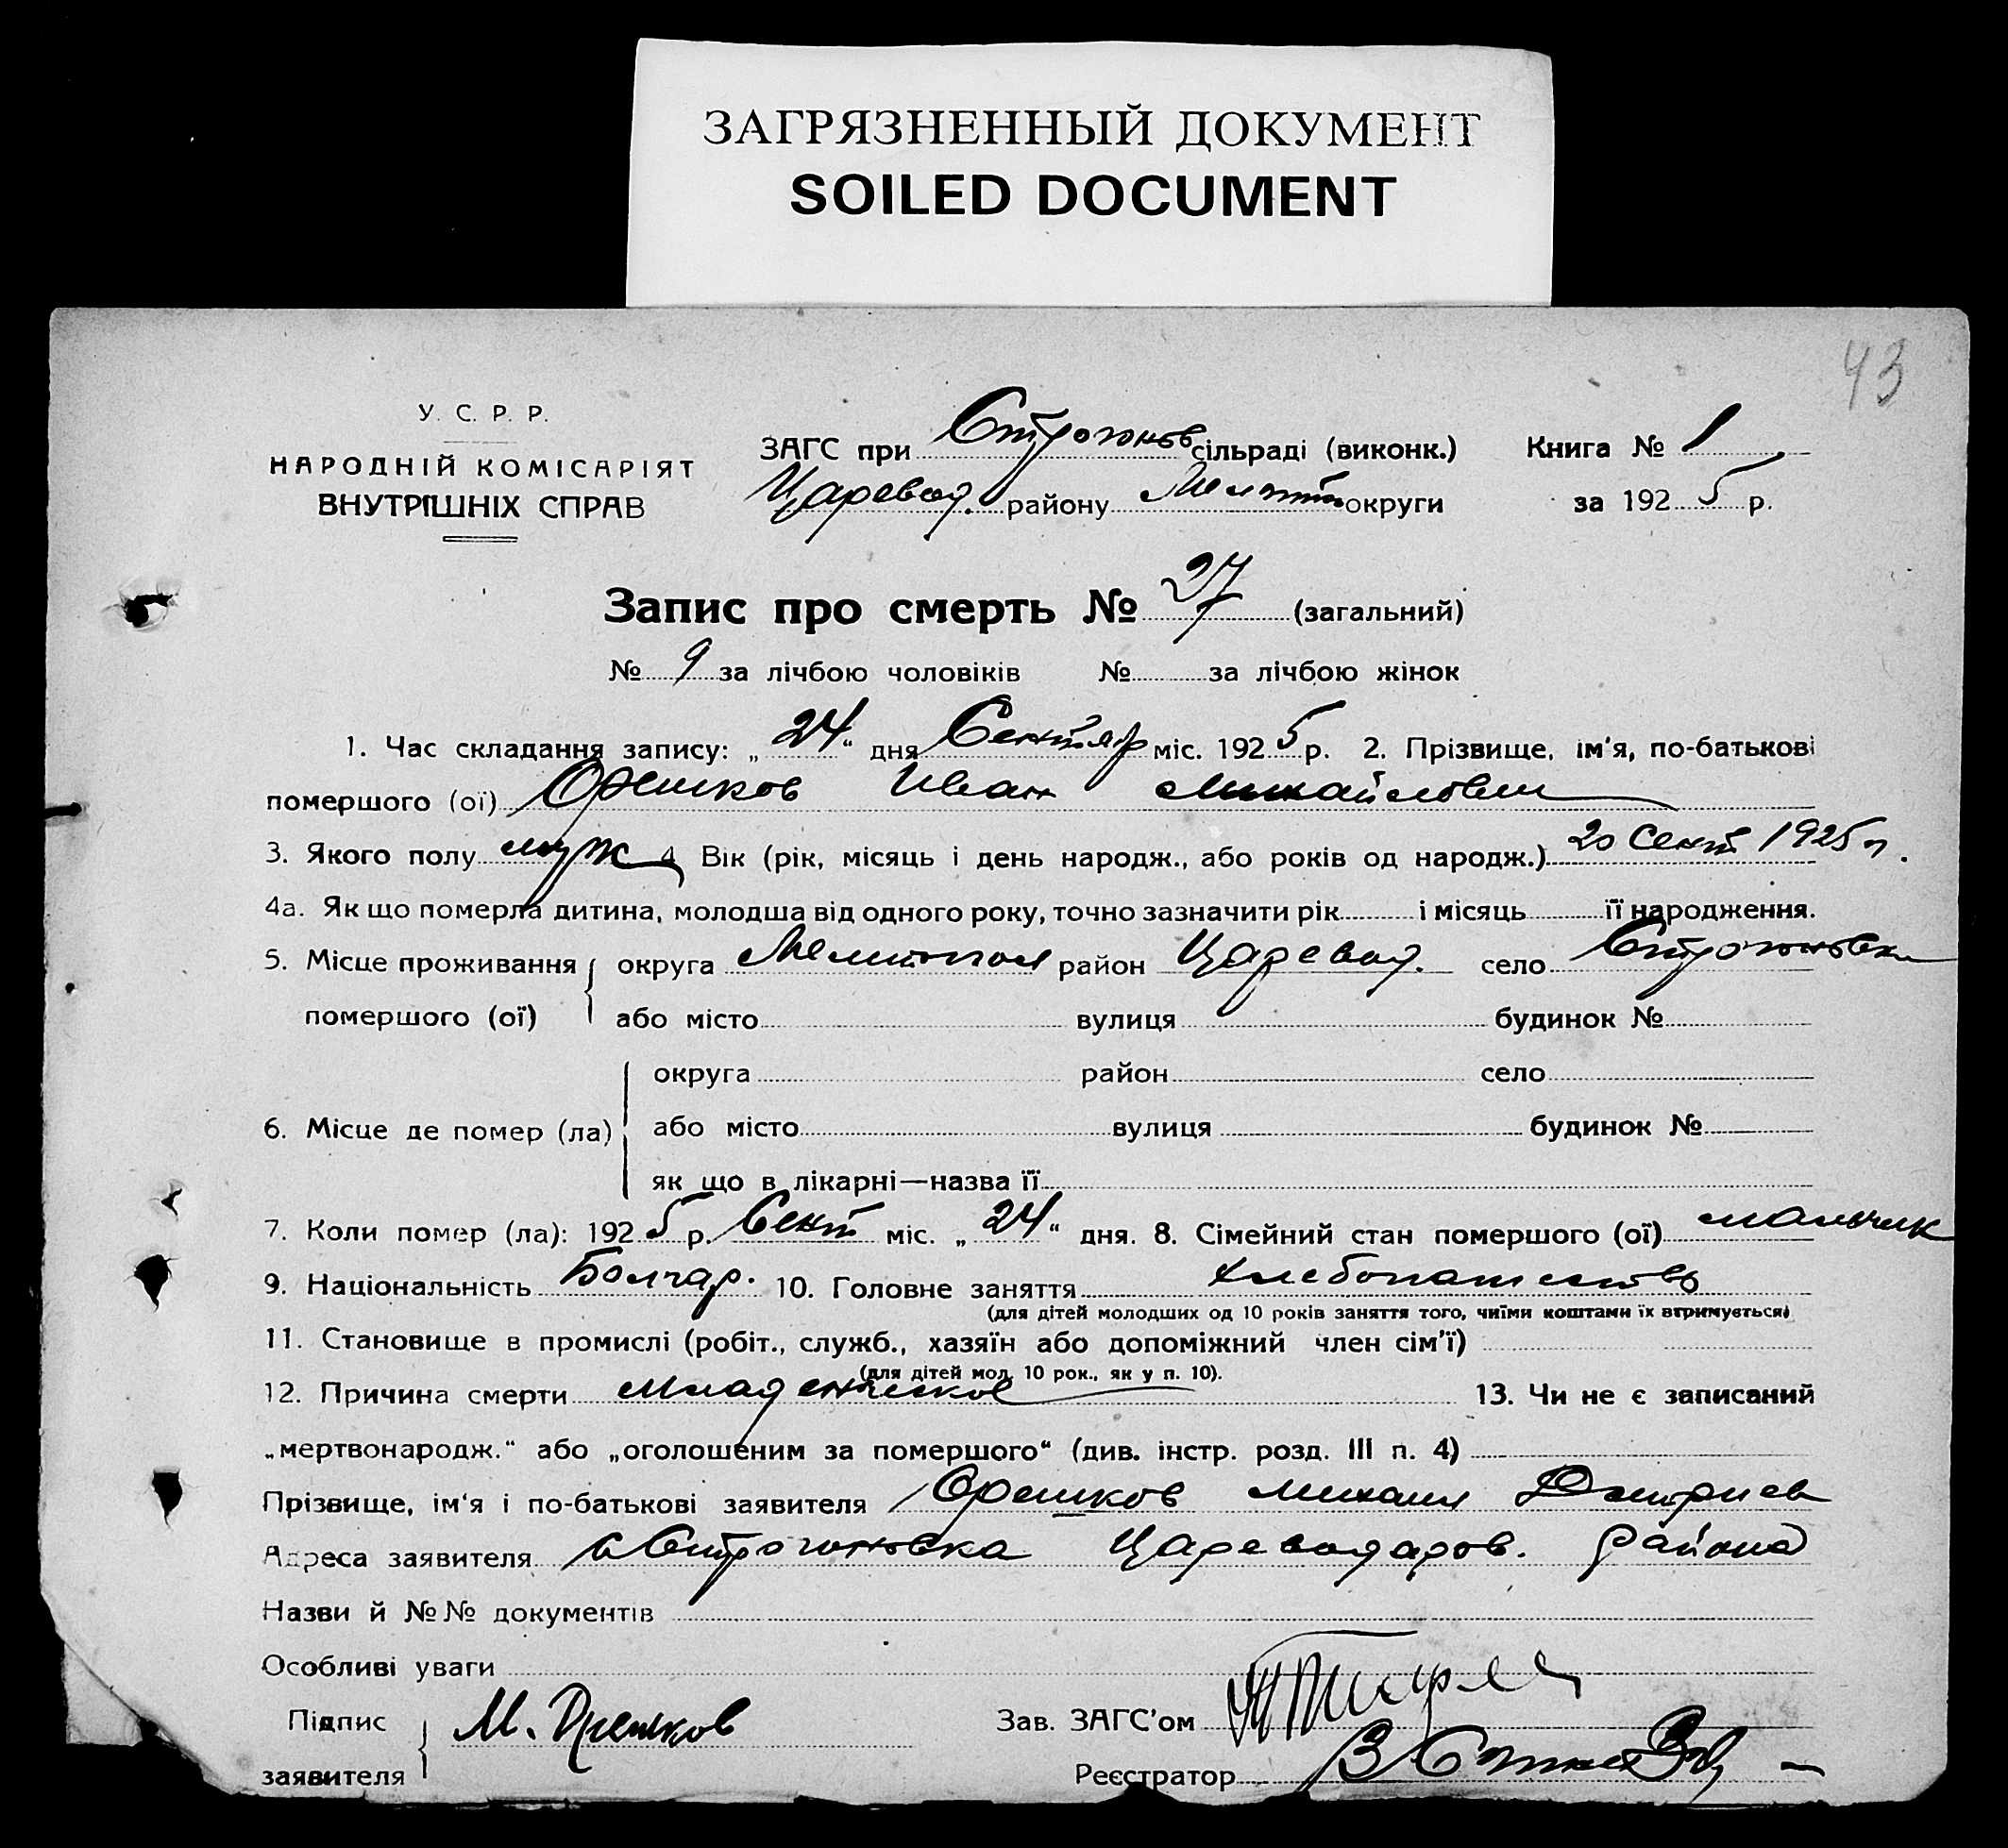 ЗАГРЯЗНЕННЫЙ ДОКУМЕНТ
SOILED DOCUMENT
43
У. С. Р. Р.
НАРОДНІЙ КОМІСАРІЯТ
ВНУТРІШНІХ СПРАВ
ЗАГС при Строгонов сільраді (виконк.) Книга № 1
Царевод. району Мелит. округи за 1925 р.
Запис про смерть № 27 (загальний)
№ 9 за лічбою чоловіків № за лічбою жінок
1. Час складання запису: „24“ дня Сентяр міс. 1925 р. 2. Прізвище, ім'я, по-батькові
помершого (ої) Орешков Иван Михайлович
3. Якого полу муж 4. Вік (рік, місяць і день народж., або років од народж.) 20 Сент 1925 г.
4а. Як що померла дитина, молодша від одного року, точно зазначити рік і місяць її народження.
5. Місце проживання округа Мелитопол район Царевод. село Строгоновка
помершого (ої) або місто вулиця будинок №
округа район село
6. Місце де помер (ла) або місто вулиця будинок №
як що в лікарні—назва її
7. Коли помер (ла): 1925 р. Сент міс. „24“ дня. 8. Сімейний стан помершого (ої) мальчик
9. Національність Болгар. 10. Головне заняття хлебопашество
(для дітей молодших од 10 років заняття того, чиїми коштами їх втримується)
11. Становище в промислі (робіт., служб., хазяїн або допоміжний член сім'ї)
(для дітей мол. 10 рок., як у п. 10).
12. Причина смерти младенческое 13. Чи не є записаний
„мертвонародж.“ або „оголошеним за помершого“ (див. інстр. розд. III п. 4)
Прізвище, ім'я і по-батькові заявителя Орешков Михаил Дмитриев
Адреса заявителя с Строгоновка Цареводаров. района
Назви й №№ документів
Особливі уваги
Підпис М. Орешков Зав. ЗАГС'ом
заявителя Реєстратор